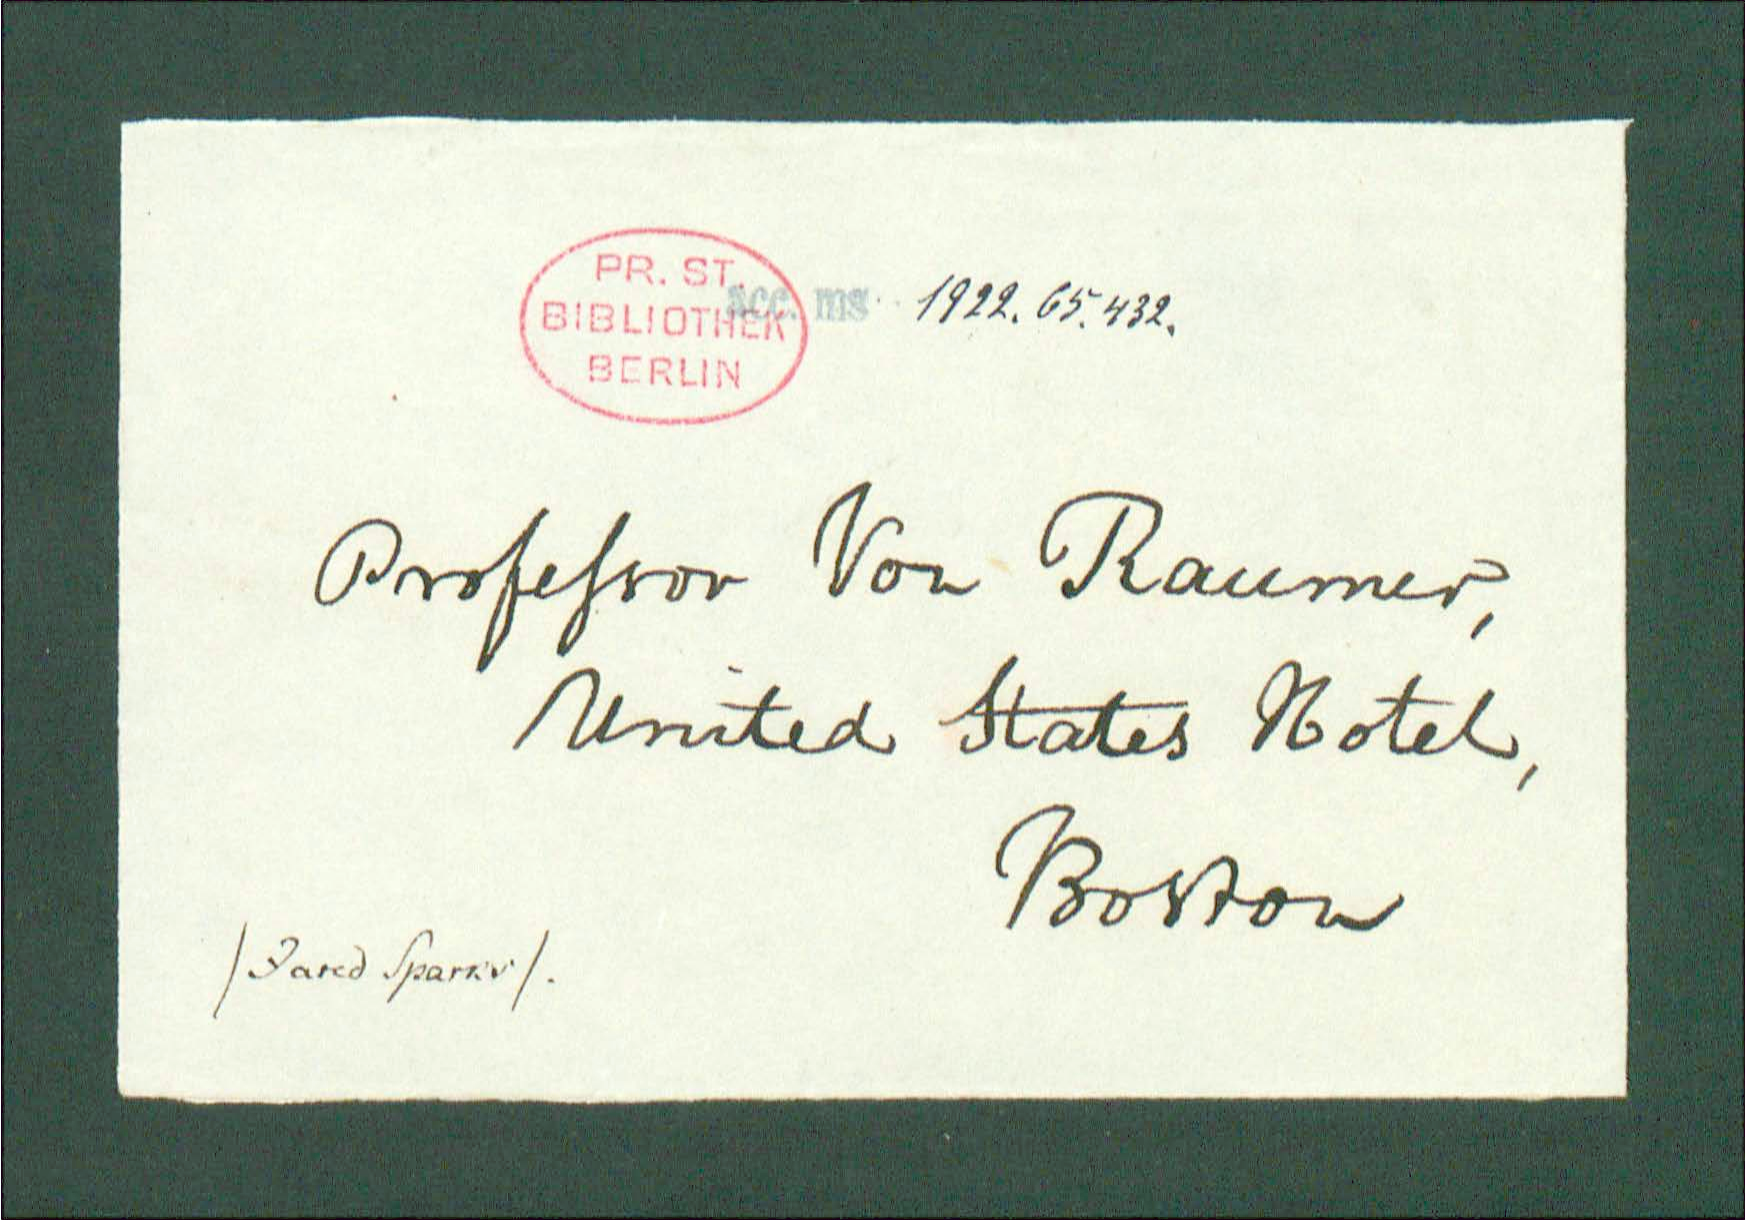 PR. ST.
BIBLIOTHEK
BERLIN
acc. ms. 1922. 65. 432.
Profeſsor Von Raumer,
United States Hotel,
Boston
/Jared Sparks/.